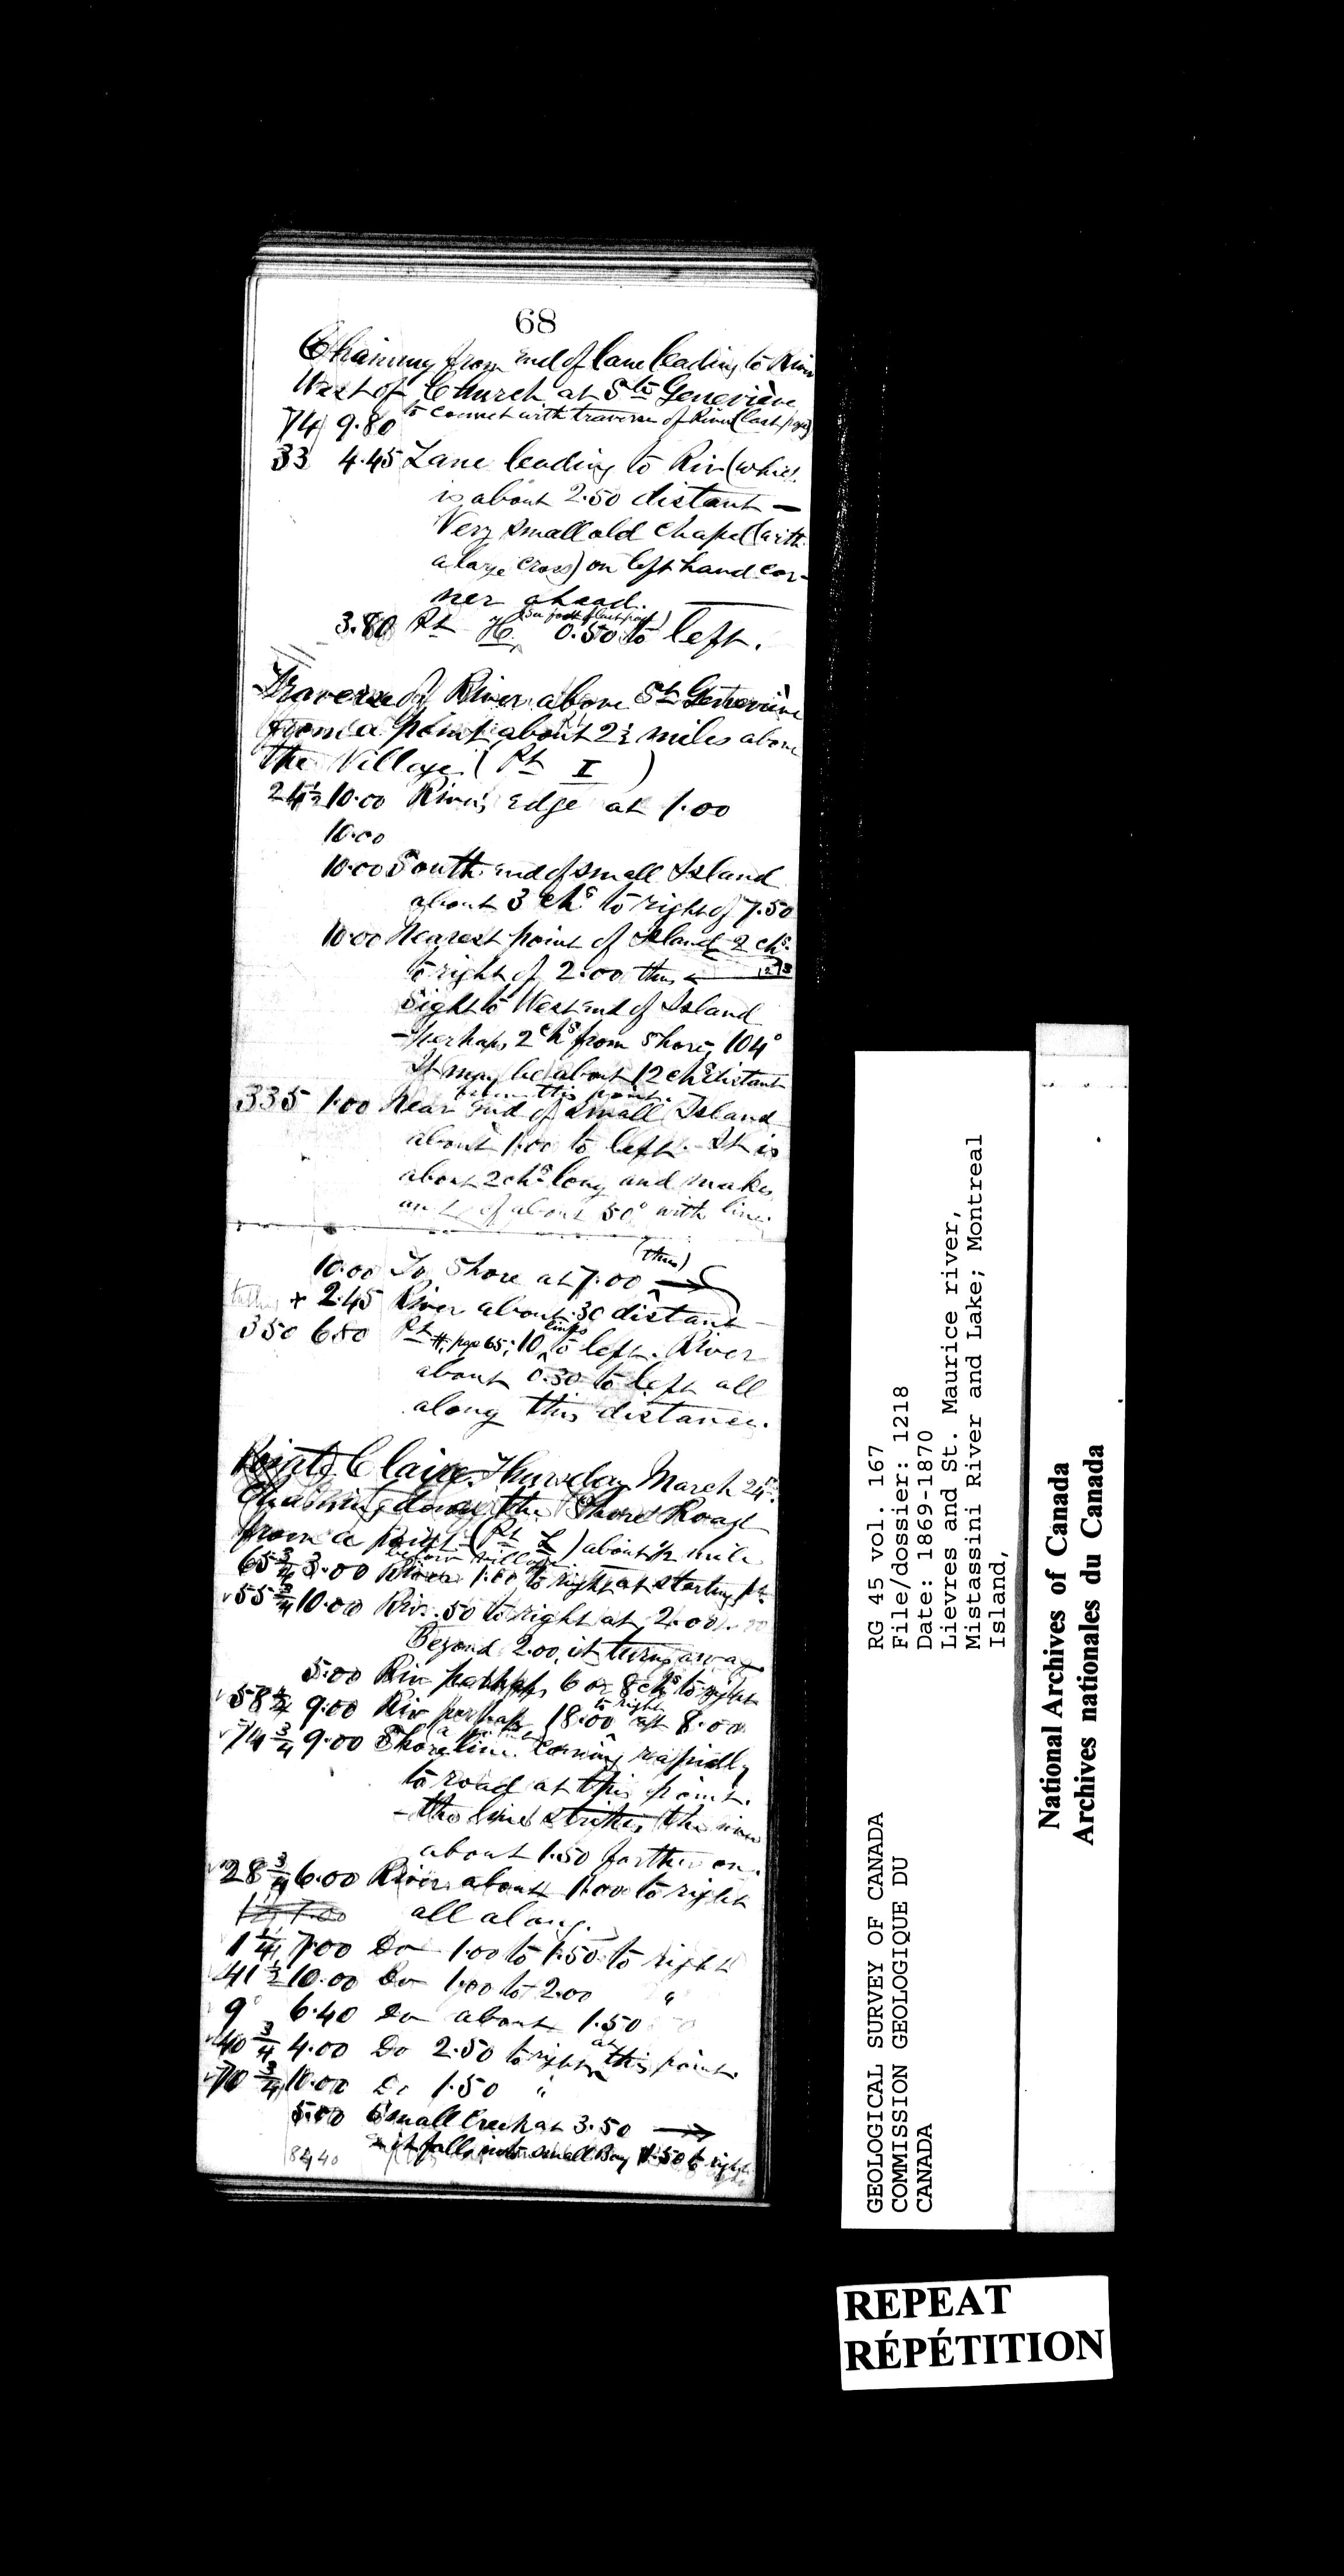 68
Chaining from end of lane leading to River
West of Church at Ste Geneviève
to connect with traverse of River (last page)
74 9.80
33 4.45 Lane leading to Riv (which
is about 2.50 distant —
Very small old chapel (with
a large cross) on left hand cor-
ner ahead.
3.80 Pt H (See foot of last page) 0.50 to left.
Traverse of River above Ste Geneviève
from a point about 2½ miles above
the Village (Pt I)
24½ 10.00 River's edge at 1.00
10.00
10.00 South end of small Island
about 3 chs to right of 7.50
10.00 Nearest point of Island 2 chs
to right of 2.00 thus
Sight to West end of Island
– perhaps 2 chs from Shore, 104°
It may be about 12 chs distant
from this point.
335 1.00 Near end of small Island
about 1.00 to left. It is
about 2 chs long and makes
an ∠ of about 50° with line.
10.00 To Shore at 7.00 (thus) →
+ 2.45 River about .30 distant
350 6.80 Pt #, page 65; 10 links to left. River
about 0.30 to left all
along this distance.
Pointe Claire. Thursday March 24th.
Chaining down the Shore Road
from a point (Pt L) about ½ mile
below village
65¾ 3.00 River 1.00 to right at starting pt.
55¾ 10.00 Riv. .50 to right at 2.00.
Beyond 2.00, it turns away.
5.00 Riv perhaps 6 or 8 chs to right
58¼ 9.00 Riv perhaps 18.00 to right at 8.00
74¾ 9.00 Shore line coming rapidly
to road at this point.
– the line strikes the river
about 1.50 farther on.
28¾ 6.00 River about 1.00 to right
all along.
1¼ 7.00 Do 1.00 to 1.50 to right
41½ 10.00 Do 1.00 to 2.00 "
9° 6.40 Do about 1.50
40¾ 4.00 Do 2.50 to right at this point.
70¾ 10.00 Do 1.50 "
5.00 Small Creek at 3.50 →
it falls into small Bay 1.50 to right
84.40
GEOLOGICAL SURVEY OF CANADA
COMMISSION GEOLOGIQUE DU
CANADA
RG 45 vol. 167
File/dossier: 1218
Date: 1869-1870
Lievres and St. Maurice river,
Mistassini River and Lake; Montreal
Island,
National Archives of Canada
Archives nationales du Canada
REPEAT
RÉPÉTITION